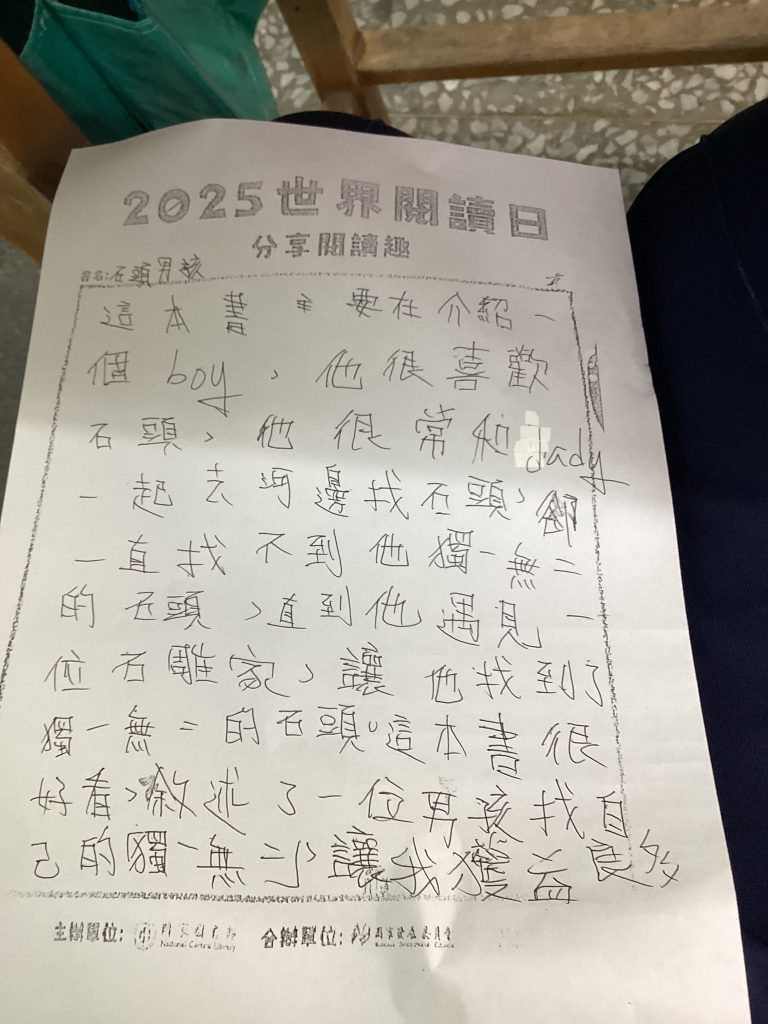 2025世界閱讀日
分享閱讀趣
書名:石頭男孩
這本書主要在介紹一
個boy，他很喜歡
石頭，他很常和dady
一起去河邊找石頭，卻
一直找不到他獨一無二
的石頭，直到他遇見一
位石雕家，讓他找到了
獨一無二的石頭。這本書很
好看，敘述了一位男孩找自
己的獨一無二，讓我獲益良多
主辦單位: 國家圖書館
National Central Library
合辦單位: 國家發展委員會
National Development Council